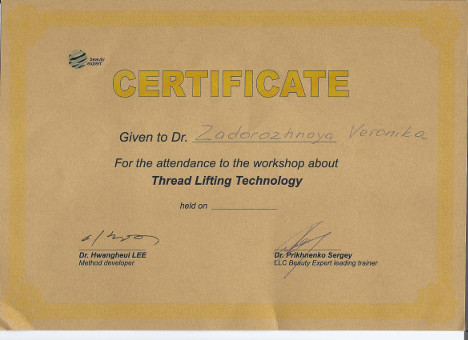 beauty
expert
CERTIFICATE
Given to Dr. Zadorozhnaya Veronika
For the attendance to the workshop about
Thread Lifting Technology
held on
Dr. Hwangheul LEE
Method developer
Dr. Prikhnenko Sergey
LLC Beauty Expert leading trainer